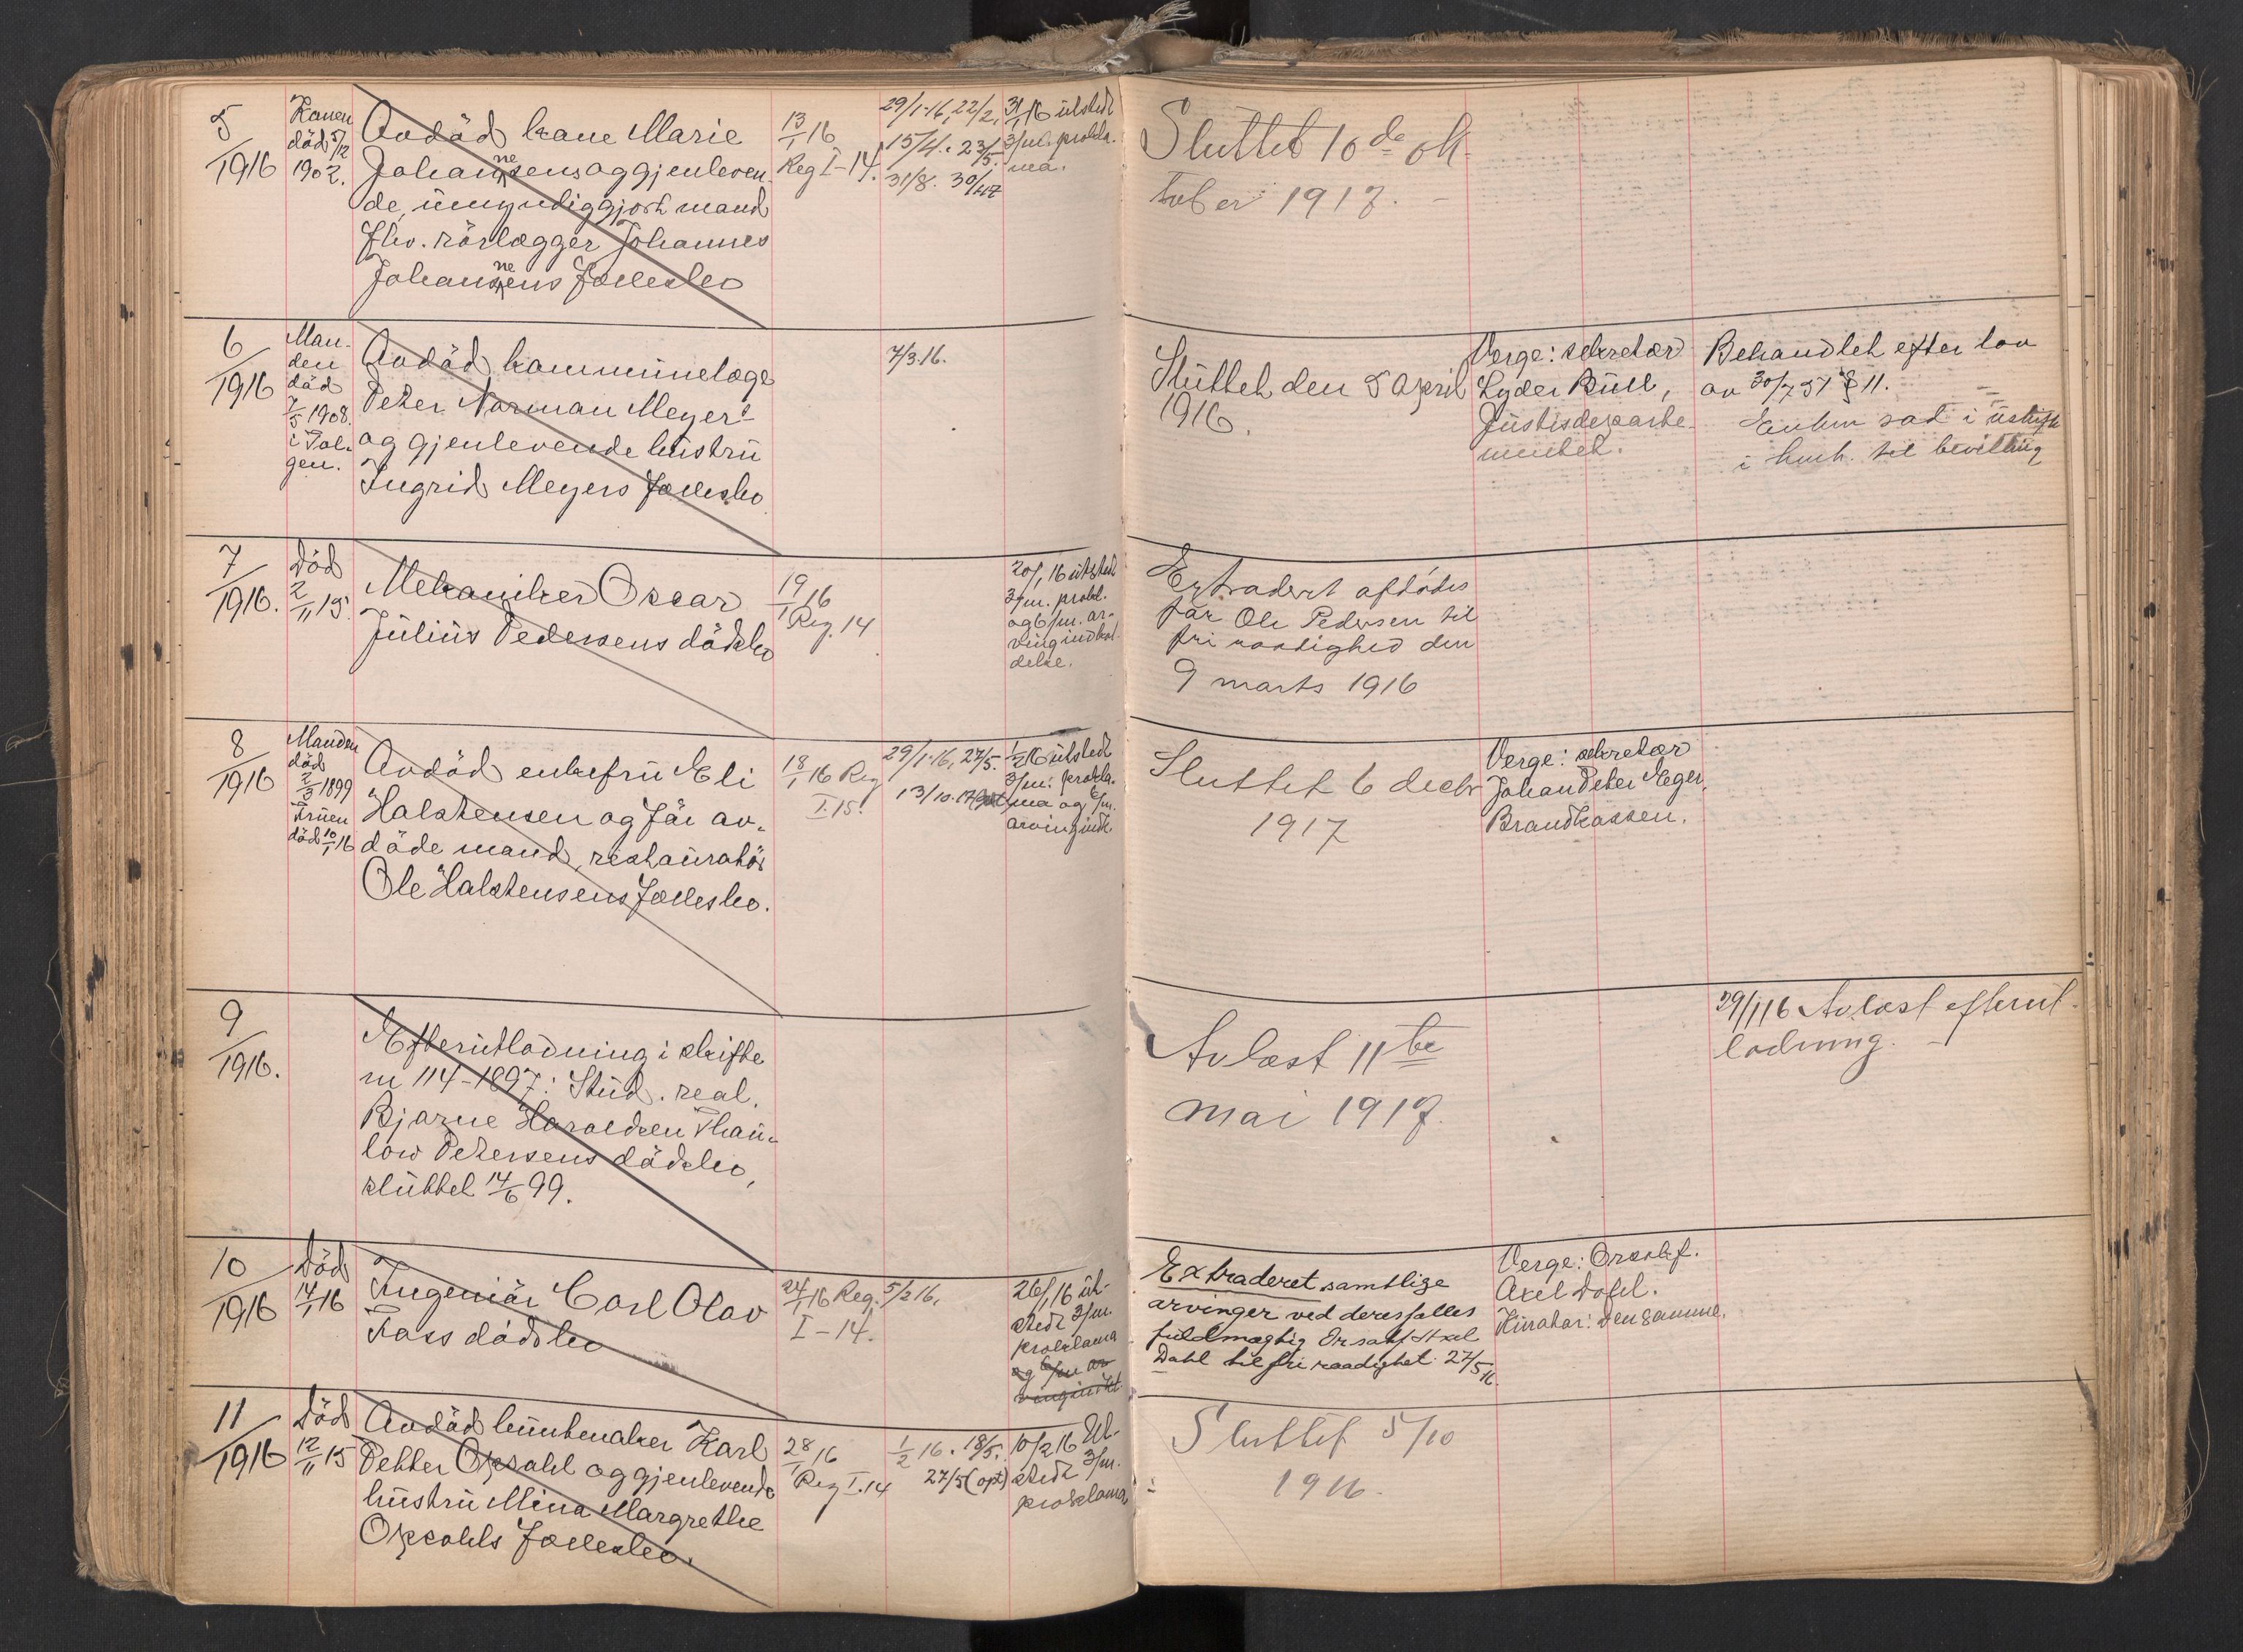 5
1916
Konen
död 5/12
1902.
Avdöd kone Marie
Johannesens og gjenleven-
de, umyndiggjort mand
fhv. rörlægger Johannes
Johannesens fællesbo
13/1 16
Reg I-14.
29/1-16, 22/2,
15/4. 23/5.
31/8. 30/
31/1 16 utstedt
3/m. prokla-
ma.
Sluttet 10de ok-
tober 1917.
6
1916
Man-
den
död
7/5 1908.
gen.
Avdöd kommunelæge
Peter Norman Meyers
og gjenlevende hustru
Ingrid Meyers fællesbo
7/3.16.
Sluttet den 5 April
1916.
Verge: sekretær
Lyder Bull,
Justisdeparte-
mentet.
Behandlet efter lov
av 30/7 51 § 11.
Enken sad i uskifte
i henh. til bevilling
7
1916.
Död
2/11 15.
Mekaniker Oscar
Julius Pedersens dödsbo
19/1 16
Reg. 14
20/1 16 utstedt
3/m. prokl.
og 6/m. ar-
vingindkal-
delse.
Extradert afdödes
far Ole Pedersen til
fri raadighed den
9 marts 1916
8
1916
Manden
död
2/3 1899
Fruen
död 10/1 16
Avdöd enkefru Eli
Halstensen og för av-
döde mand, restauratör
Ole Halstensens fællesbo.
18/1 16 Reg
I.15.
29/1.16, 27/5.
13/10.17
1/2 16 utstedt
3/m. prokla-
ma og 6/m.
arvingindk.
Sluttet 6 decbr
1917
Verge: sekretær
Johan Peter Eger,
Brandkassen.
9
1916.
Efterutlodning i skifte
nr 114-1897: Stud. real.
Bjarne Haroldsen Thau-
low Petersens dödsbo,
sluttet 14/6 99.
Avlæst 11te
mai 1917.
29/1 16 Avlæst efterut-
lodning.
10
1916
Död
14/1 16
Ingeniör Carl Olav
Foss dödsbo
24/1 16 Reg.
I-14.
5/2 16.
26/1 16 ut-
stedt 3/m.
proklama
og 6/m ar-
vingindk.
Extraderet samtlige
arvinger ved deres fælles
fuldmægtig Orsakf Axel
Dahl til fri raadighet 27/5 16.
Verge: Orsakf.
Axel Dahl.
Kurator: Den samme.
11
1916
Död
12/11 15
Avdöd buntmaker Karl
Petter Opsahl og gjenlevende
hustru Mina Margrethe
Opsahls fællesbo.
28/1 16
Reg I.14
1/2 16. 18/5.
27/5 (opt)
10/2 16 Ut-
stedt 3/m.
proklama
Sluttet 5/10
1916.